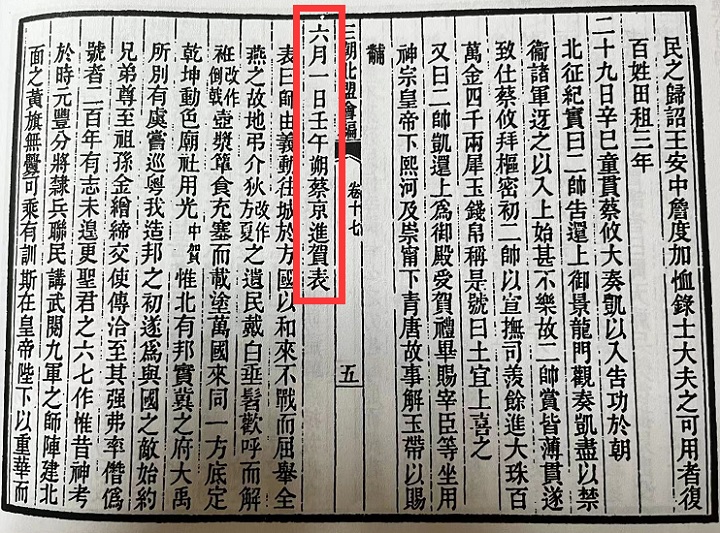 民之歸詔王安中詹度加恤錄士大夫之可用者復
百姓田租三年
二十九日辛巳童貫蔡攸大奏凱以入告功於朝
北征紀實曰二帥告還上御景龍門觀奏凱盡以禁
衞諸軍迓之以入上始甚不樂故二帥賞皆薄貫遂
致仕蔡攸拜樞密初二帥以宣撫可羨餘進大珠百
萬金四千兩犀玉錢帛稱是號曰土宜上喜之
又曰二帥凱還上爲御殿受賀禮畢賜宰臣等坐用
神宗皇帝下熙河及崇甯下青唐故事解玉帶以賜
黼
三朝北盟會編 卷十七 五
六月一日壬午朔蔡京進賀表
表曰師由義動往城於方國以和來不戰而屈舉全
燕之故地弔介狄改作方夏之遺民戴白垂髫歡呼而解
袵改作倒戟壺漿簞食充塞而載塗萬國來同一方底定
乾坤動色廟社用光中賀 惟北有邦實冀之府大禹
所別有虞嘗巡粤我造邦之初遂爲與國之敵始約
兄弟尊至祖孫金繒締交使傳洽至其强弗率僭僞
號者二百年有志未遑更聖君之六七作惟昔神考
於時元豐分將隸兵聯民講武闢九軍之師陣建北
面之黃旗無釁可乘有訓斯在皇帝陛下以重華而